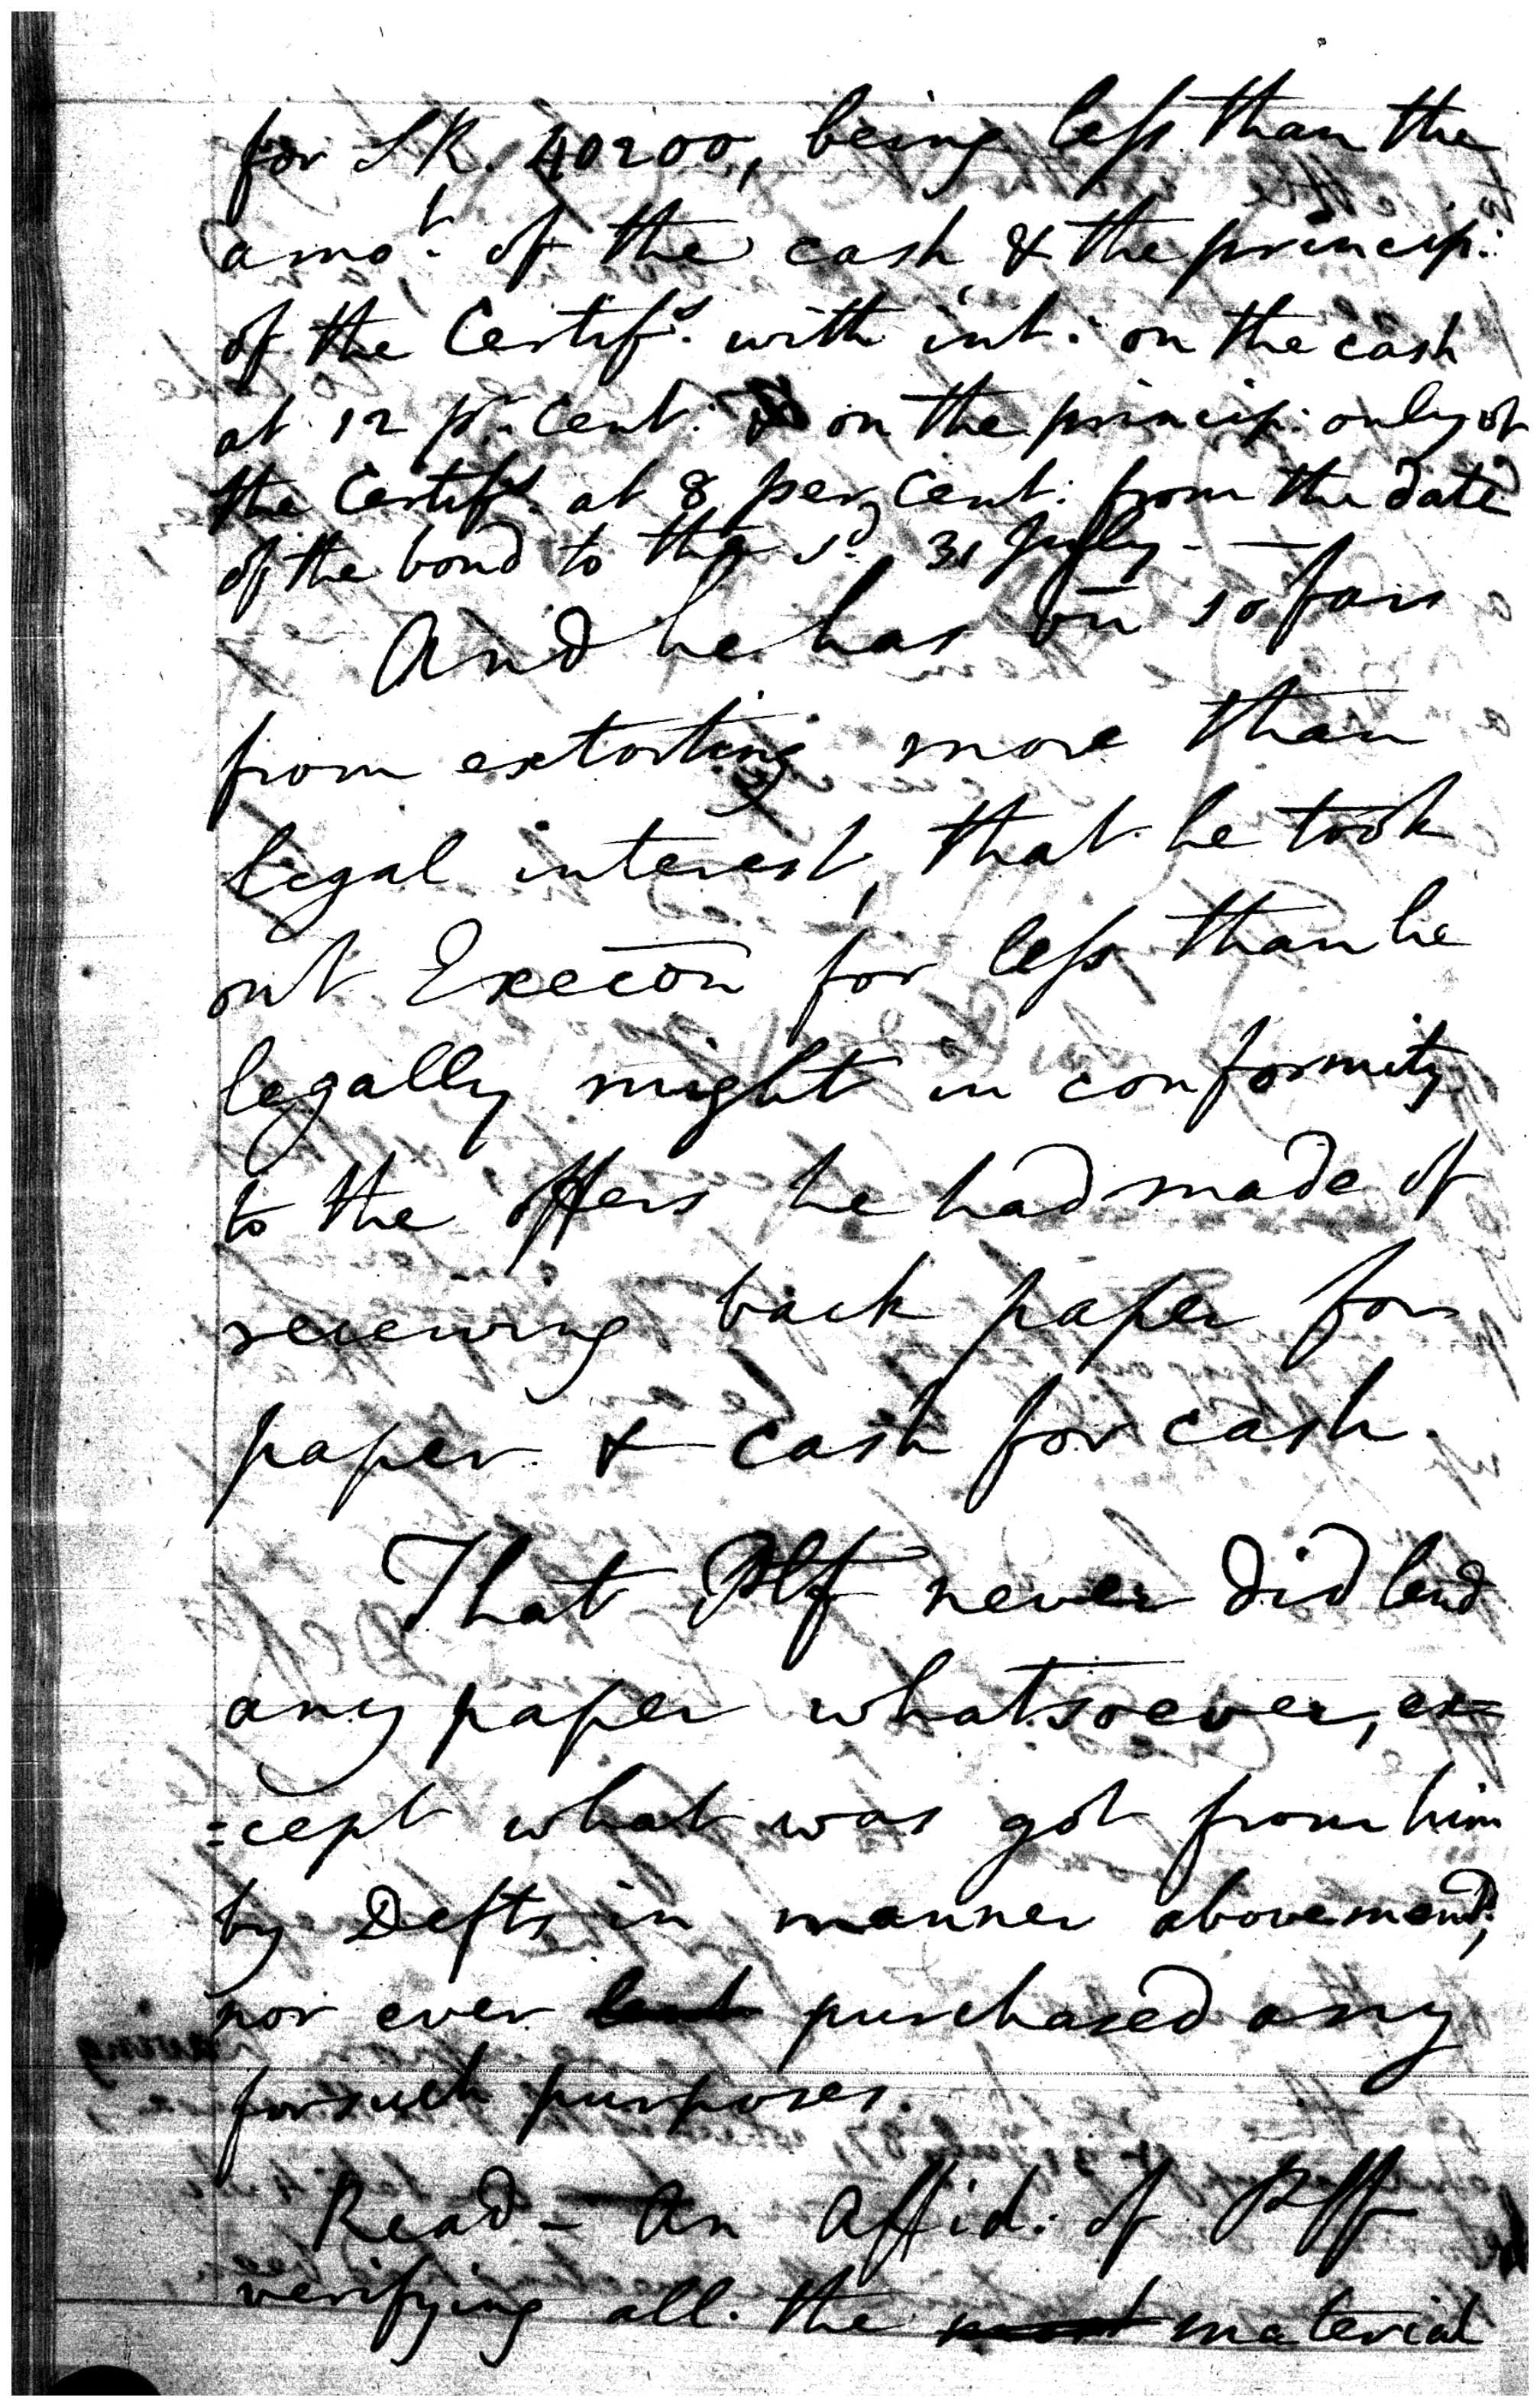 for S R. 40200, being less than the
amo.t of the cash & the princip:
of the Certif.s with int: on the cash
at 12 pr. Cent: & on the princip: only of
the Certif.s at 8 per Cent: from the date
of the bond to the s.d 31 July. —
And he has bn̄ so far
from extorting more than
legal interest, that he took
out Execon̄ for less than he
legally might in conformity
to the offers he had made of
receiving back paper for
paper & cash for cash.
That Plf never did lend
any paper whatsoever, ex=
=cept what was got from him
by Defts in manner abovemend;
nor ever lent purchased any
for such purposes.
Read – An Affid: of Plff
verifying all the most material